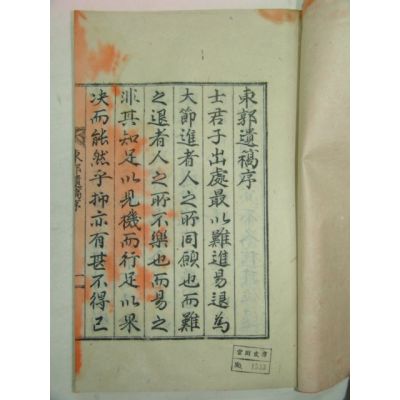 東郭遺稿序
士君子出處最以難進易退爲
大節進者人之所同願也而難
之退者人之所不樂也而易之
非其知足以見機而行足以果
决而能然乎抑亦有甚不得已
東郭遺稿序
一
No. 1513